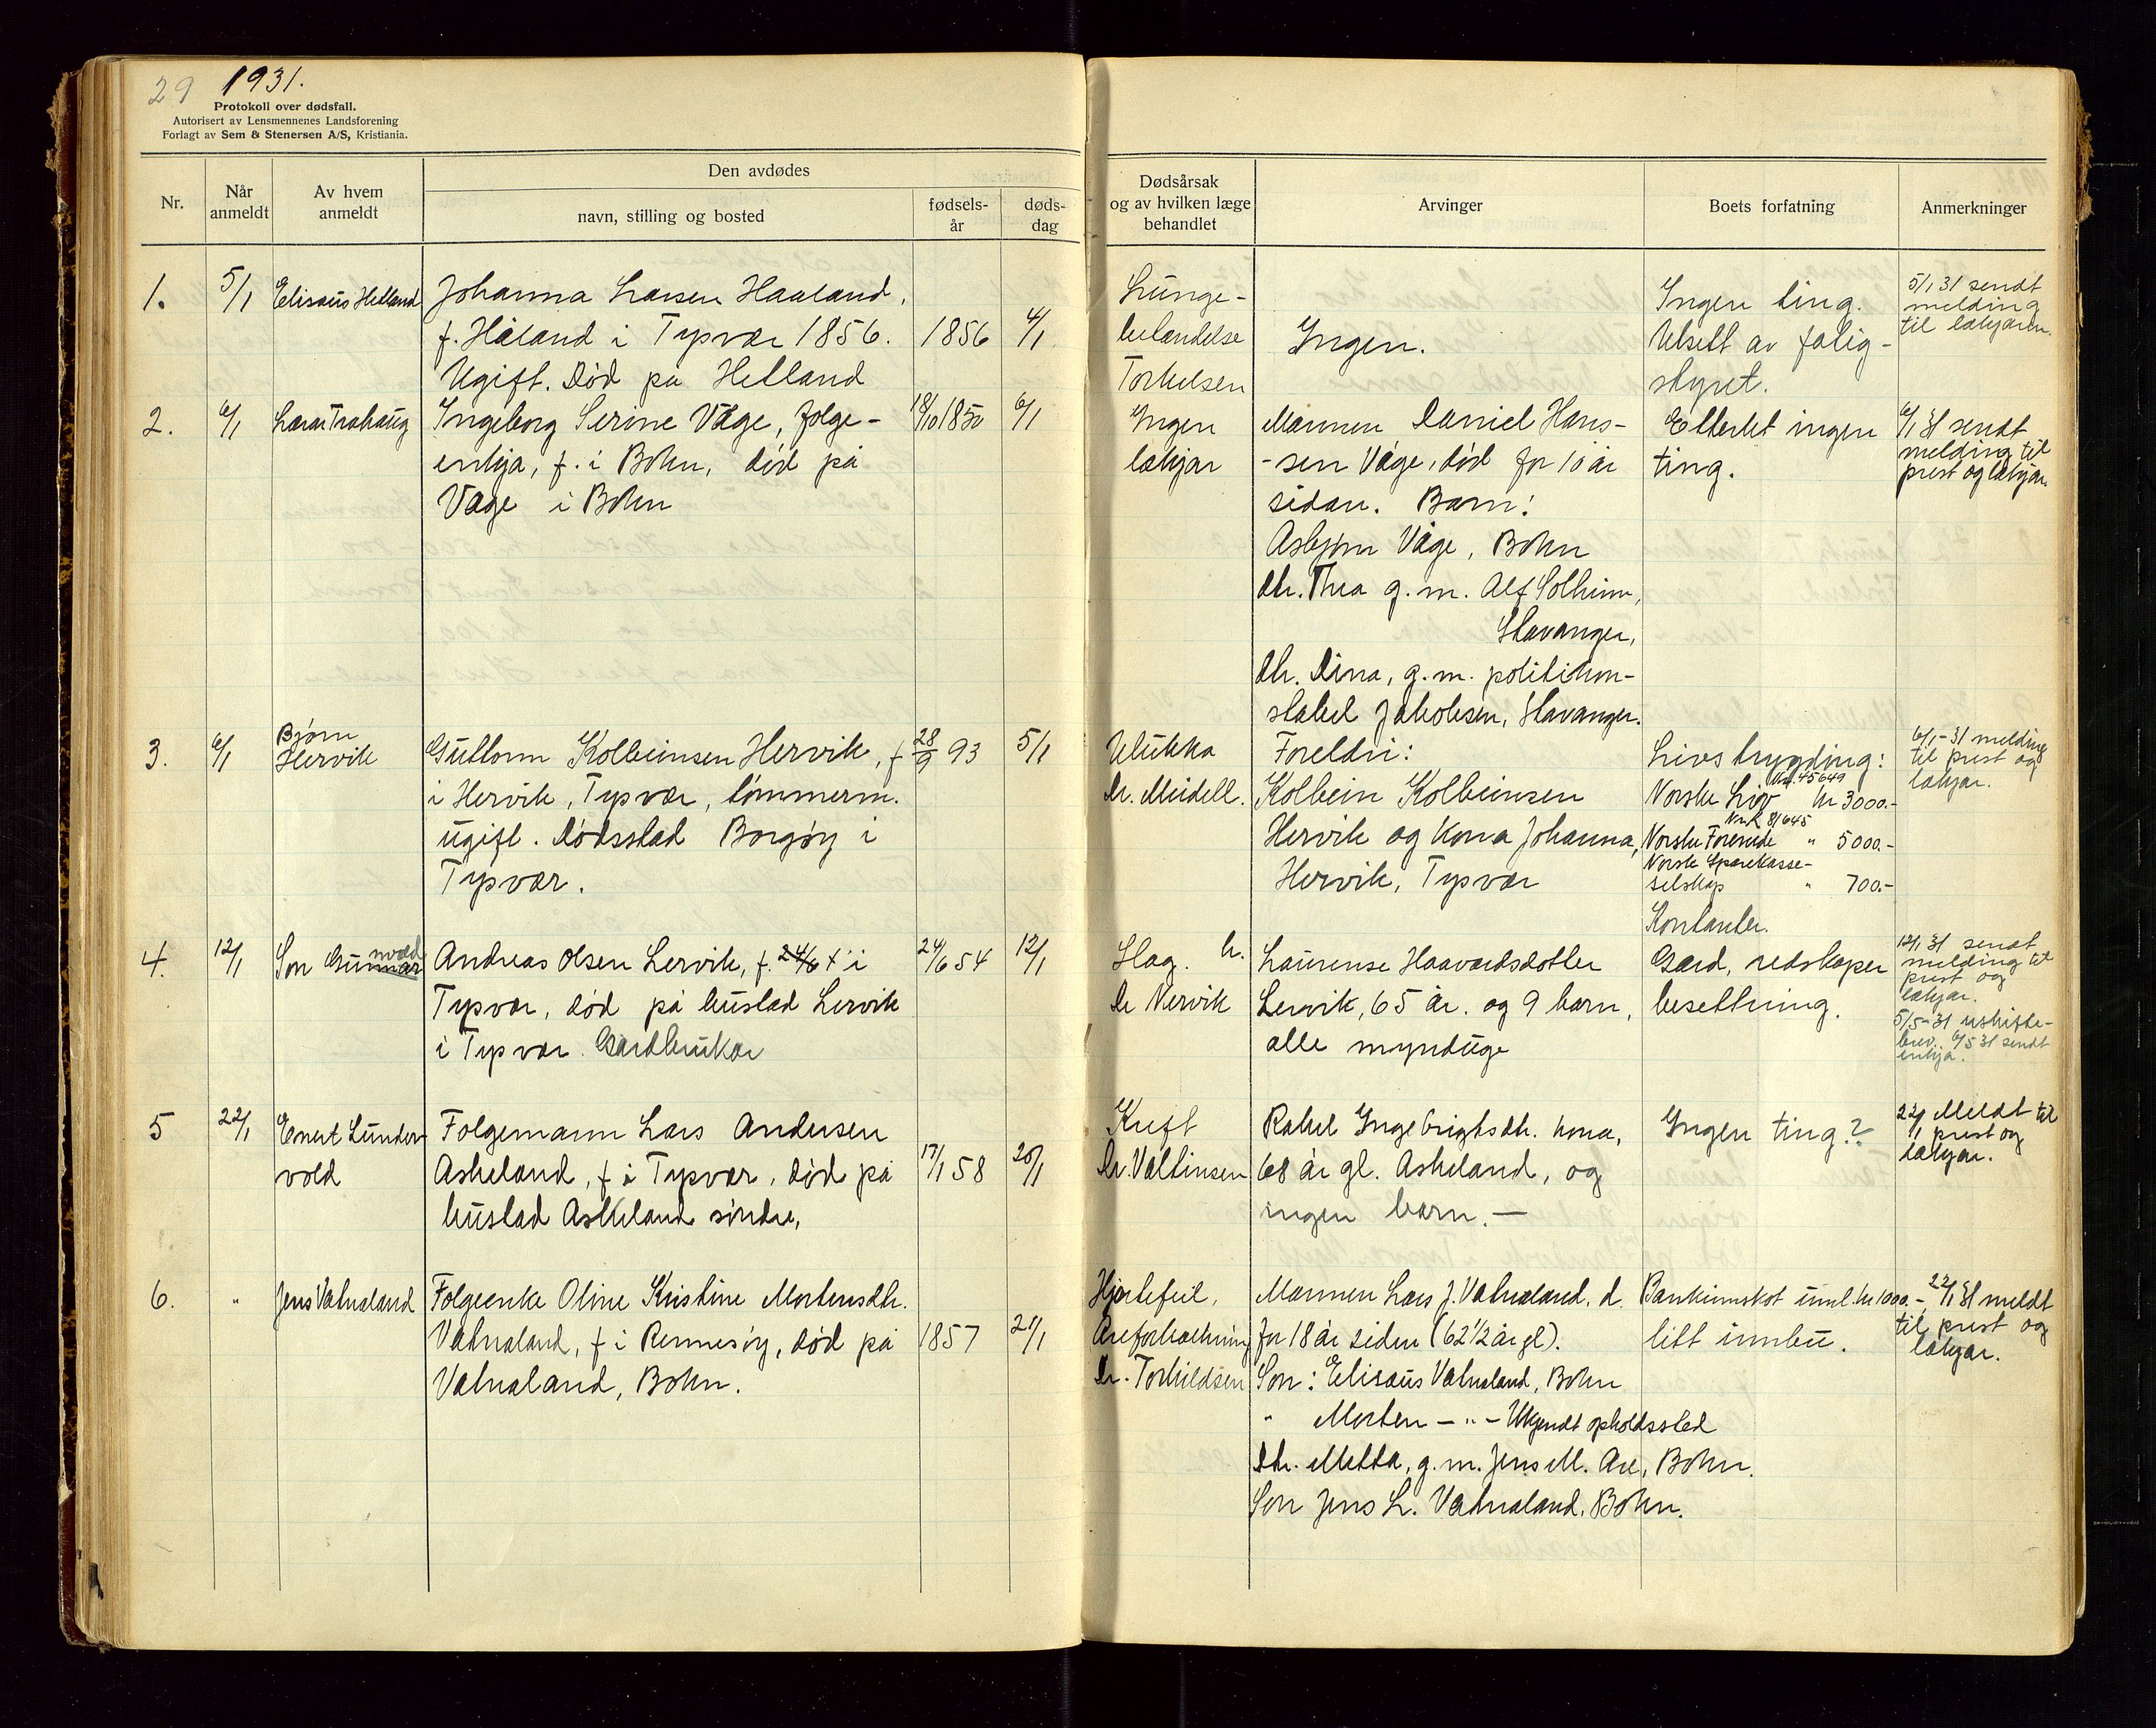 29 1931.
Protokoll over dødsfall.
Autorisert av Lensmennenes Landsforening
Forlagt av Sem & Stenersen A/S, Kristiania.
Nr.
Når anmeldt
Av hvem anmeldt
Den avdødes
navn, stilling og bosted
fødsels-år
døds-dag
Dødsårsak
og av hvilken læge
behandlet
Arvinger
Boets forfatning
Anmerkninger
1. 5/1 Elisæus Helland
Johanna Larsen Haaland,
f. Håland i Tysvær 1856. 1856 4/1
Ugift. Død på Helland
Lunge-
betendelse
Torkelsen
Ingen.
Ingen ting.
Utsett av fatig-
styret.
5/1 31 sendt
melding
til lækjaren.
2. 6/1
Ingeborg Serine Våge, folge- 18/10 1850 6/1
enkja, f. i Bokn, død på
Våge i Bokn
Ingen
lækjar
Mannen Daniel Hans-
-sen Våge, død for 10 år
sidan. Barn:
Asbjørn Våge, Bokn
Dtr. Thea g. m. Alf Solheim,
Stavanger,
Dtr. Dina, g. m. politikon-
stabel Jakobsen, Stavanger.
Etterlet ingen
ting.
6/1 31 sendt
melding til
prest og lækjar
3. 6/1 Bjørn
Hervik
Guttorm Kolbeinsen Hervik, f 28/9 93 5/1
i Hervik, Tysvær, tømmerm.
ugift. Dødsstad Borgøy i
Tysvær.
Ulukka
Dr. Meidell.
Foreldri:
Kolbein Kolbeinsen
Hervik og kona Johanna,
Hervik, Tysvær
Livstrygding:
Nr. 45649
Norske Liv kr 3000.-
Nr. R 81645
Norske Forenede " 5000.-
Norsk Sparekasse-
selskap " 700.-
Kontanter.
6/1-31 melding
til prest og
lækjar.
4. 12/1 Son Gunnar nvald
Andreas Olsen Lervik, f. 24/6 i 24/6 54 12/1
Tysvær, død på bustad Lervik
i Tysvær. Gardbrukar
Slag.
Dr Nervik
k. Laurense Haavardsdotter
Lervik, 65 år. og 9 barn,
alle mynduge
Gard, redskaper
besettning.
12/1 31 sendt
melding til
prest og
lækjar.
5/5-31 uskifte-
brev. 6/5 31 sendt
enkja.
5 22/1 Enert Lunder-
vold
Folgemann Lars Andersen
Askeland, f i Tysvær, død på 17/1 58 20/1
bustad Askeland søndre,
Kreft
Dr. Valtinsen
Rakel Ingebrigtsdtr. kona,
68 år gl. Askeland, og
ingen barn. —
Ingen ting?
22/1 Meldt til
prest og
lækjar.
6. " Jens Vatnaland
Folgeenke Oline Kristine Mortensdtr.
Vatnaland, f i Rennesøy, død på 1857 21/1
Vatnaland, Bokn.
Hjertefeil,
Åreforkalkning
Dr. Torkildsen
Mannen Lars J. Vatnaland, d.
for 18 år siden (62 1/2 år gl).
Son: Elisæus Vatnaland, Bokn
" Morten — " — Ukjendt opholdssted
Dtr. Metta, g. m. Jens M. Are, Bokn.
Son Jens L. Vatnaland, Bokn.
Bankinnskot innl. kr 1000.-
litt innbu.
22/1 31 meldt
til prest og
lækjar.